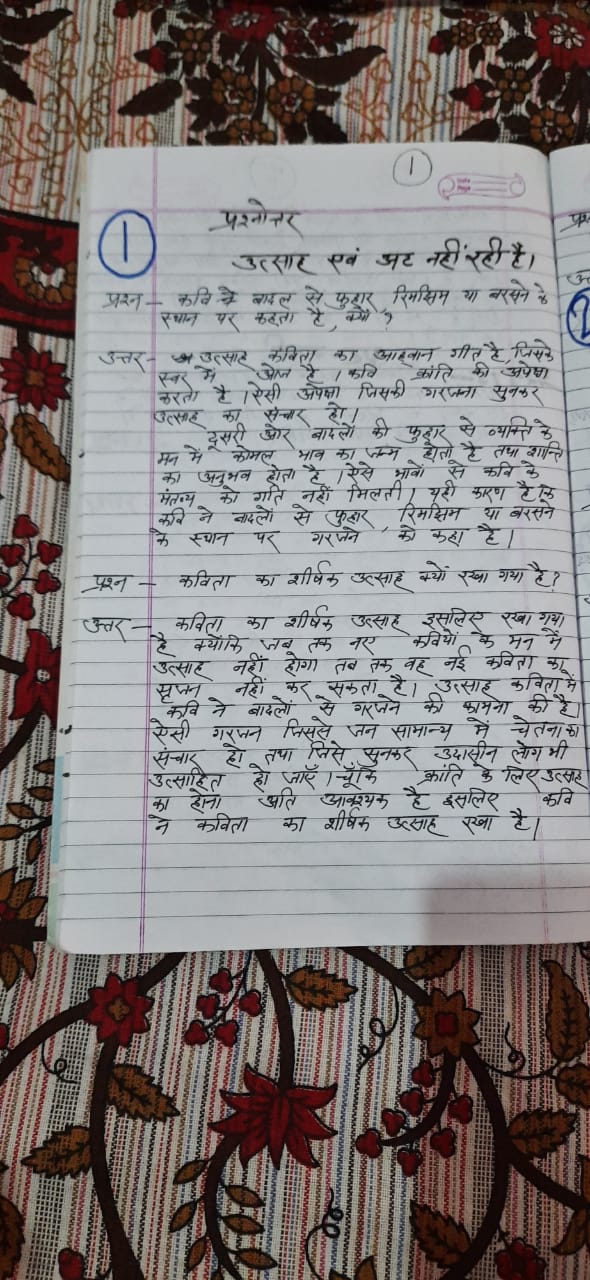 1
प्रश्नोत्तर
1
उत्साह एवं अट नहीं रही है।
प्रश्न - कवि ने बादल से फुहार, रिमझिम या बरसने के
स्थान पर कहता है, क्यों ?
उत्तर - उत्साह कविता का आहवान गीत है, जिसके
स्वर में ओज है। कवि क्रांति की अपेक्षा
करता है। ऐसी अपेक्षा जिसकी गरजना सुनकर
उत्साह का संचार हो।
दूसरी ओर बादलों की फुहार से व्यक्ति के
मन में कोमल भाव का जन्म होता है तथा शान्ति
का अनुभव होता है। ऐसे भावों से कवि के
मंतव्य को गति नहीं मिलती। यही कारण है कि
कवि ने बादलों से फुहार, रिमझिम या बरसने
के स्थान पर गरजने को कहा है।
प्रश्न - कविता का शीर्षक उत्साह क्यों रखा गया है?
उत्तर - कविता का शीर्षक उत्साह इसलिए रखा गया
है क्योंकि जब तक नए कवियों के मन में
उत्साह नहीं होगा तब तक वह नई कविता का
सृजन नहीं कर सकता है। उत्साह कविता में
कवि ने बादलों से गरजने की कामना की है।
ऐसी गरजन जिससे जन सामान्य में चेतना का
संचार हो तथा जिसे सुनकर उदासीन लोग भी
उत्साहित हो जाएँ। चूँकि क्रांति के लिए उत्साह
का होना अति आवश्यक है इसलिए कवि
ने कविता का शीर्षक उत्साह रखा है।